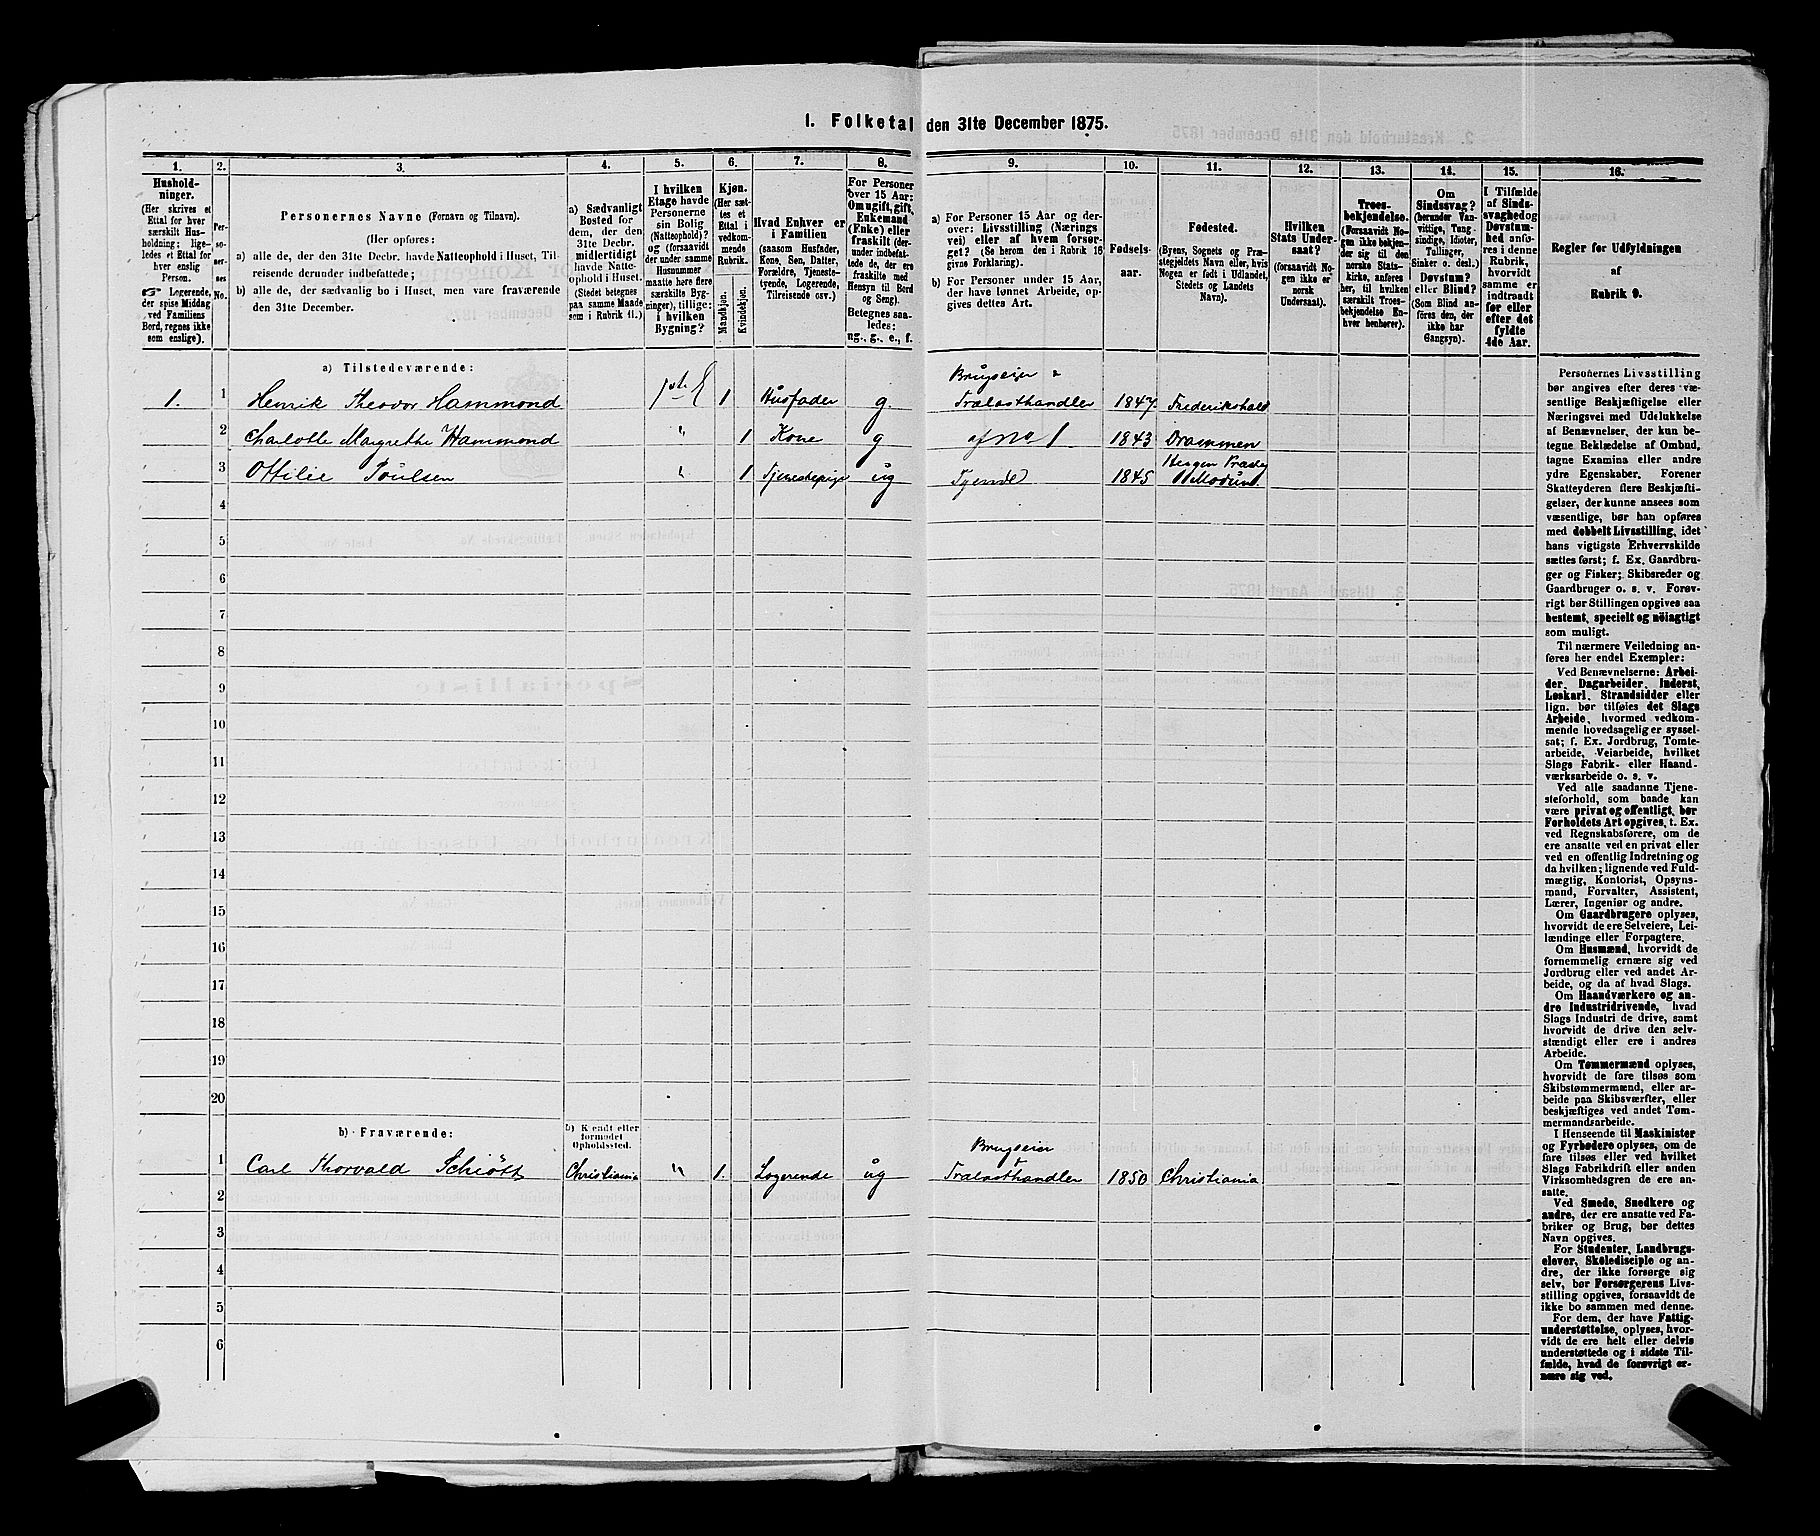 1. Folketal den 31te December 1875.
1.
2.
3.
4.
5.
6.
7.
8.
9.
10.
11.
12.
13.
14.
15.
16.
Hushold-
ninger.
(Her skrives et
Ettal for hver
særskilt Hus-
holdning; lige-
ledes et Ettal for
hver enslig
Person.
☞ Logerende,
der spise Middag
ved Familiens
Bord, regnes ikke
som enslige).
Per-
so-
ner-
nes
No.
Personernes Navne (Fornavn og Tilnavn).
(Her opføres:
a) alle de, der den 31te Decbr. havde Natteophold i Huset, Til-
reisende derunder indbefattede;
b) alle de, der sædvanlig bo i Huset, men vare fraværende
den 31te December.
a) Sædvanligt
Bosted for
dem, der den
31te Decbr.
midlertidigt
havde Natte-
ophold i Huset.
(Stedet betegnes
paa samme Maade
som i Rubrik 11.)
I hvilken
Etage havde
Personerne
sin Bolig
(Natteophold)?
og (forsaavidt
der under samme
Husnummer
maatte høre flere
særskilte Byg-
ninger), tillige:
i hvilken
Bygning?
Kjøn.
(Her sæt-
tes et
Ettal i
vedkom-
mende
Rubrik.
Mandkjøn.
Kvindekjøn.
Hvad Enhver er
i Familien
(saasom Husfader,
Kone, Søn, Datter,
Forældre, Tjeneste-
tyende, Logerende,
Tilreisende osv.)
For Personer
over 15 Aar:
Om ugift, gift,
Enkemand
(Enke) eller
fraskilt (der-
under indbefat-
tede de, der ere
fraskilte med
Hensyn til Bord
og Seng).
Betegnes saa-
ledes:
ug., g., e., f.
a) For Personer 15 Aar og der-
over: Livsstilling (Nærings
vei) eller af hvem forsør-
get? (Se herom den i Rubrik 16
givne Forklaring).
b) For Personer under 15 Aar,
der have lønnet Arbeide, op-
gives dettes Art.
Fødsels-
aar.
Fødested.
(Byens, Sognets og Præ-
stegjeldets Navn eller, hvis
Nogen er født i Udlandet,
Stedets og Landets
Navn).
Hvilken
Stats Under-
saat?
(forsaavidt No-
gen ikke er
norsk
Undersaat).
Troes-
bekjendelse.
(Forsaavidt No-
gen ikke bekjen-
der sig til den
norske Stats-
kirke, anføres
her, til hvilken
særskilt Troes-
bekjendelse En-
hver henhører).
Om
Sindssvag?
(herunder Van-
vittige, Tung-
sindige, Idioter,
Tullinger,
Sinker o. desl.)
Døvstum?
eller Blind?
(Som Blind an-
føres den, der
ikke har
Gangsyn).
I Tilfælde
af Sinds-
svaghed og
Døvstum-
hed anfø-
res i denne
Rubrik,
hvorvidt
samme er
indtraadt
før eller
efter det
fyldte
4de Aar.
Regler for Udfyldningen
af
Rubrik 9.
a) Tilstedeværende:
Brugseier &
1. 1 Henrik Theodor Hammond 1ste E 1 Husfader g. Trælasthandler 1847. Frederikshald
2 Charlotte Margrethe Hammond " 1 Kone g af No 1 1843 Drammen
Heggen Præstg
3 Ottilie Poulsen " 1 Tjenestepige ug Tyende 1845 Modum.
4
5
6
7
8
9
10
11
12
13
14
15
16
17
18
19
20
b) Fraværende:
b) Kjendt eller
formodet
Opholdssted.
Brugseier
1 Carl Thorvald Schiött Christiania " 1. Logerende ug Trælasthandler 1850 Christiania
2
3
4
5
6
Personernes Livsstilling
bør angives efter deres væ-
sentlige Beskjæftigelse eller
Næringsvei med Udelukkelse
af Benævnelser, der kun be-
tegne Beklædelse af Ombud,
tagne Examina eller andre
ydre Egenskaber. Forener
Skatteyderen flere Beskjæfti-
gelser, der kunne ansees som
væsentlige, bør han opføres
med dobbelt Livsstilling, idet
hans vigtigste Erhvervskilde
sættes først; f. Ex. Gaardbru-
ger og Fisker; Skibsreder og
Gaardbruger o. s. v. Forøv-
rigt bør Stillingen opgives saa
bestemt, specielt og nöiagtigt
som muligt.
Til nærmere Veiledning an-
føres her endel Exempler:
Ved Benævnelserne: Arbei-
der, Dagarbeider, Inderst,
Løskarl, Strandsidder eller
lign. bør tilføies det Slags
Arbeide, hvormed vedkom-
mende hovedsagelig er syssel-
sat; f. Ex. Jordbrug, Tomte-
arbeide, Veiarbeide, hvilket
Slags Fabrik- eller Haand-
værksarbeide o. s. v.
Ved alle saadanne Tjene-
steforhold, som baade kan
være privat og offentligt, bør
Forholdets Art opgives, t. Ex.
ved Regnskabsførere, om de
ere ansatte ved en privat eller
ved en offentlig Indretning og
da hvilken; lignende ved Fuld-
mægtig, Kontorist, Opsyns-
mand, Forvalter, Assistent,
Lærer, Ingeniør og andre.
Om Gaardbrugere oplyses,
hvorvidt de ere Selveiere, Lei-
lændinge eller Forpagtere.
Om Husmænd, hvorvidt de
fornemmelig ernære sig ved
Jordbrug eller ved andet Ar-
beide, og da af hvad Slags.
Om Haandværkere og an-
dre Industridrivende, hvad
Slags Industri de drive, samt
hvorvidt de drive den selv-
stændigt eller ere i andres
Arbeide.
Om Tømmermænd oplyses,
hvorvidt de fare tilsøs som
Skibstømmermænd, eller ar-
beide paa Skibsværfter, eller
beskjæftiges ved andet Tøm-
mermandsarbeide.
I Henseende til Maskinister
og Fyrbødere oplyses, om de
fare tilsøs eller ved hvilket
Slags Fabrikdrift eller anden
Virksomhedsgren de ere an-
satte.
Ved Smede, Snedkere og
andre, der ere ansatte ved Fa-
briker og Brug, bør dettes
Navn opgives.
For Studenter, Landbrugs-
elever, Skoledisciple og an-
dre, der ikke forsørge sig
selv, bør Forsørgerens Livs-
stilling opgives, forsaavidt de
ikke bo sammen med denne.
For dem, der have Fattig-
understøttelse, oplyses, hvor-
vidt de ere helt eller delvis
understøttede og i sidste Til-
fælde, hvad de forøvrigt er-
nære sig ved.